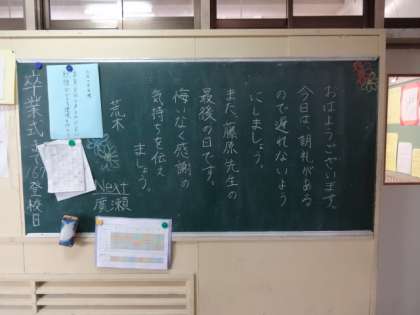 おはようございます。
今日は朝礼がある
ので遅れないよう
にしましょう。
また、藤原先生の
最後の日です。
悔いなく感謝の
気持ちを伝え
ましょう。
荒木
Next
廣瀬
卒業式まで167登校日